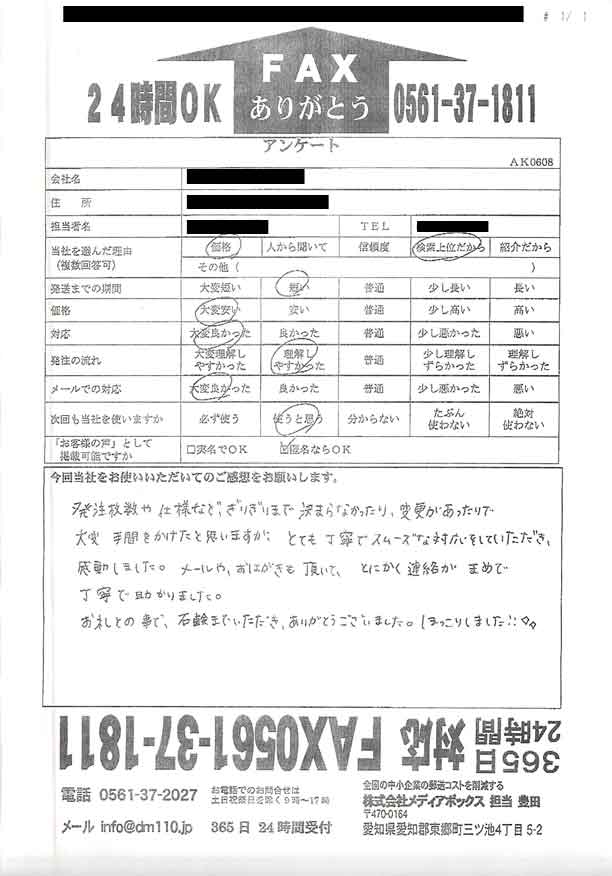 # 1/ 1
FAX
24時間OK ありがとう 0561-37-1811
アンケート
AK0608
会社名
住 所
担当者名 TEL
当社を選んだ理由 価格 人から聞いて 信頼度 検索上位だから 紹介だから
(複数回答可) その他 ( )
発送までの期間 大変短い 短い 普通 少し長い 長い
価格 大変安い 安い 普通 少し高い 高い
対応 大変良かった 良かった 普通 少し悪かった 悪い
発注の流れ 大変理解し 理解し 普通 少し理解し 理解し
やすかった やすかった ずらかった ずらかった
メールでの対応 大変良かった 良かった 普通 少し悪かった 悪い
次回も当社を使いますか 必ず使う 使うと思う 分からない たぶん 絶対
使わない 使わない
「お客様の声」として □実名でOK ☑匿名ならOK
掲載可能ですか
今回当社をお使いいただいてのご感想をお願いします。
発注枚数や仕様など、ぎりぎりまで決まらなかったり、変更があったりで
大変 手間をかけたと思いますが、とても丁寧でスムーズな対応をしていただき、
感動しました。メールや、おはがきも頂いて、とにかく連絡がまめで
丁寧で助かりました。
お礼との事で、石鹸までいただき、ありがとうございました。ほっこりしました!!
365日 24時間 対応 FAX0561-37-1811
電話 0561-37-2027 お電話でのお問合せは
土日祝祭日を除く9時～17時
メール info@dm110.jp 365日 24時間受付
全国の中小企業の郵送コストを削減する
株式会社メディアボックス 担当 豊田
〒470-0164
愛知県愛知郡東郷町三ツ池4丁目 5-2